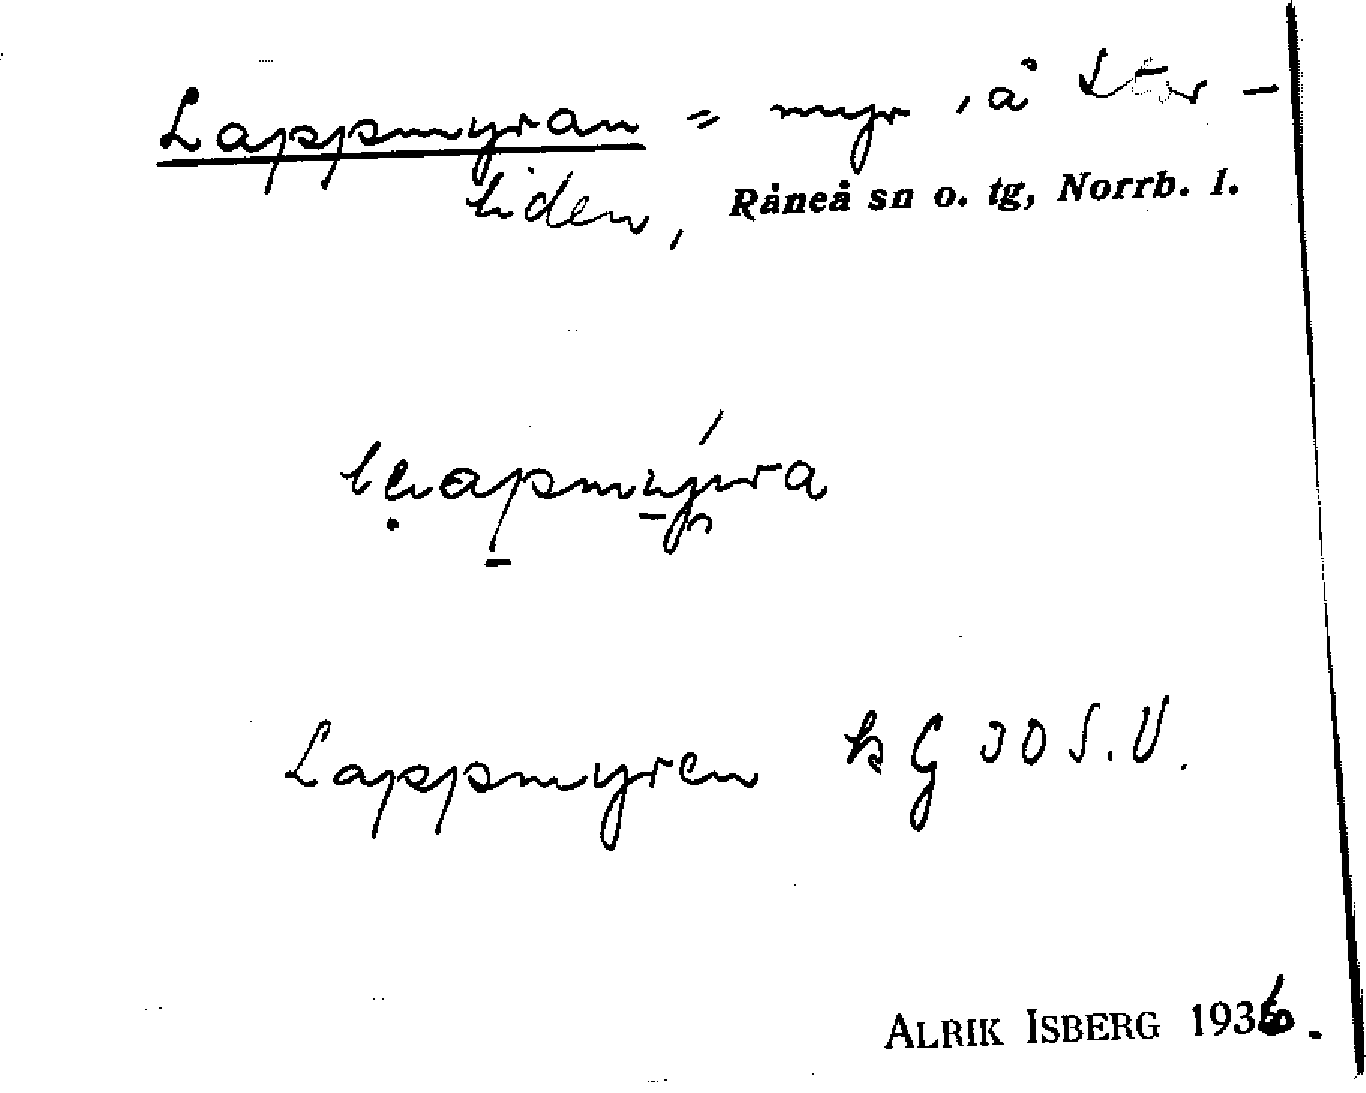 Lappmyran = myr, å Stor-
liden, Råneå sn o. tg, Norrb. l.
Lappmyren kG 30 S.V.
ALRIK ISBERG 1936.